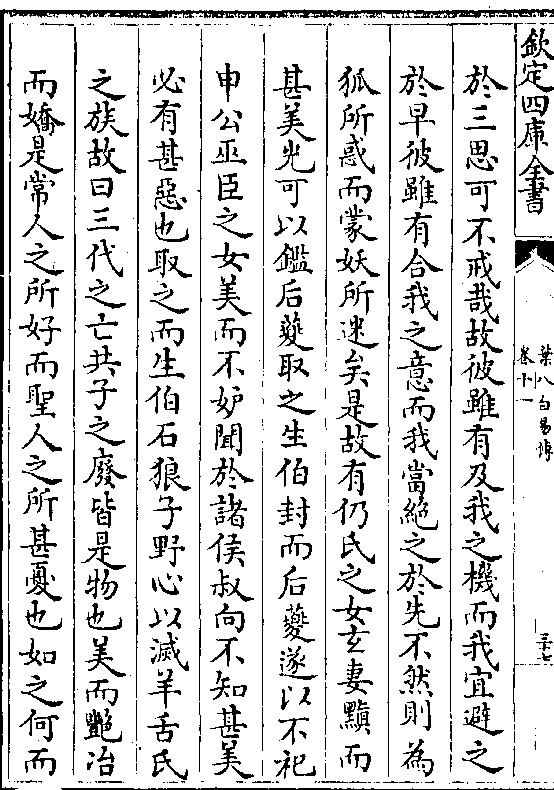 欽定四庫全書
葉八白易傳
卷十一
三十七
於三思可不戒哉故彼雖有及我之機而我宜避之
於早彼雖有合我之意而我當絶之於先不然則為
狐所惑而蒙妖所迷矣是故有仍氏之女玄妻黰而
甚美光可以鑑后夔取之生伯封而后夔遂以不祀
申公巫臣之女美而不妒聞於諸侯叔向不知甚美
必有甚惡也取之而生伯石狼子野心以滅羊舌氏
之族故曰三代之亡共子之廢皆是物也美而艷冶
而嬌是常人之所好而聖人之所甚憂也如之何而